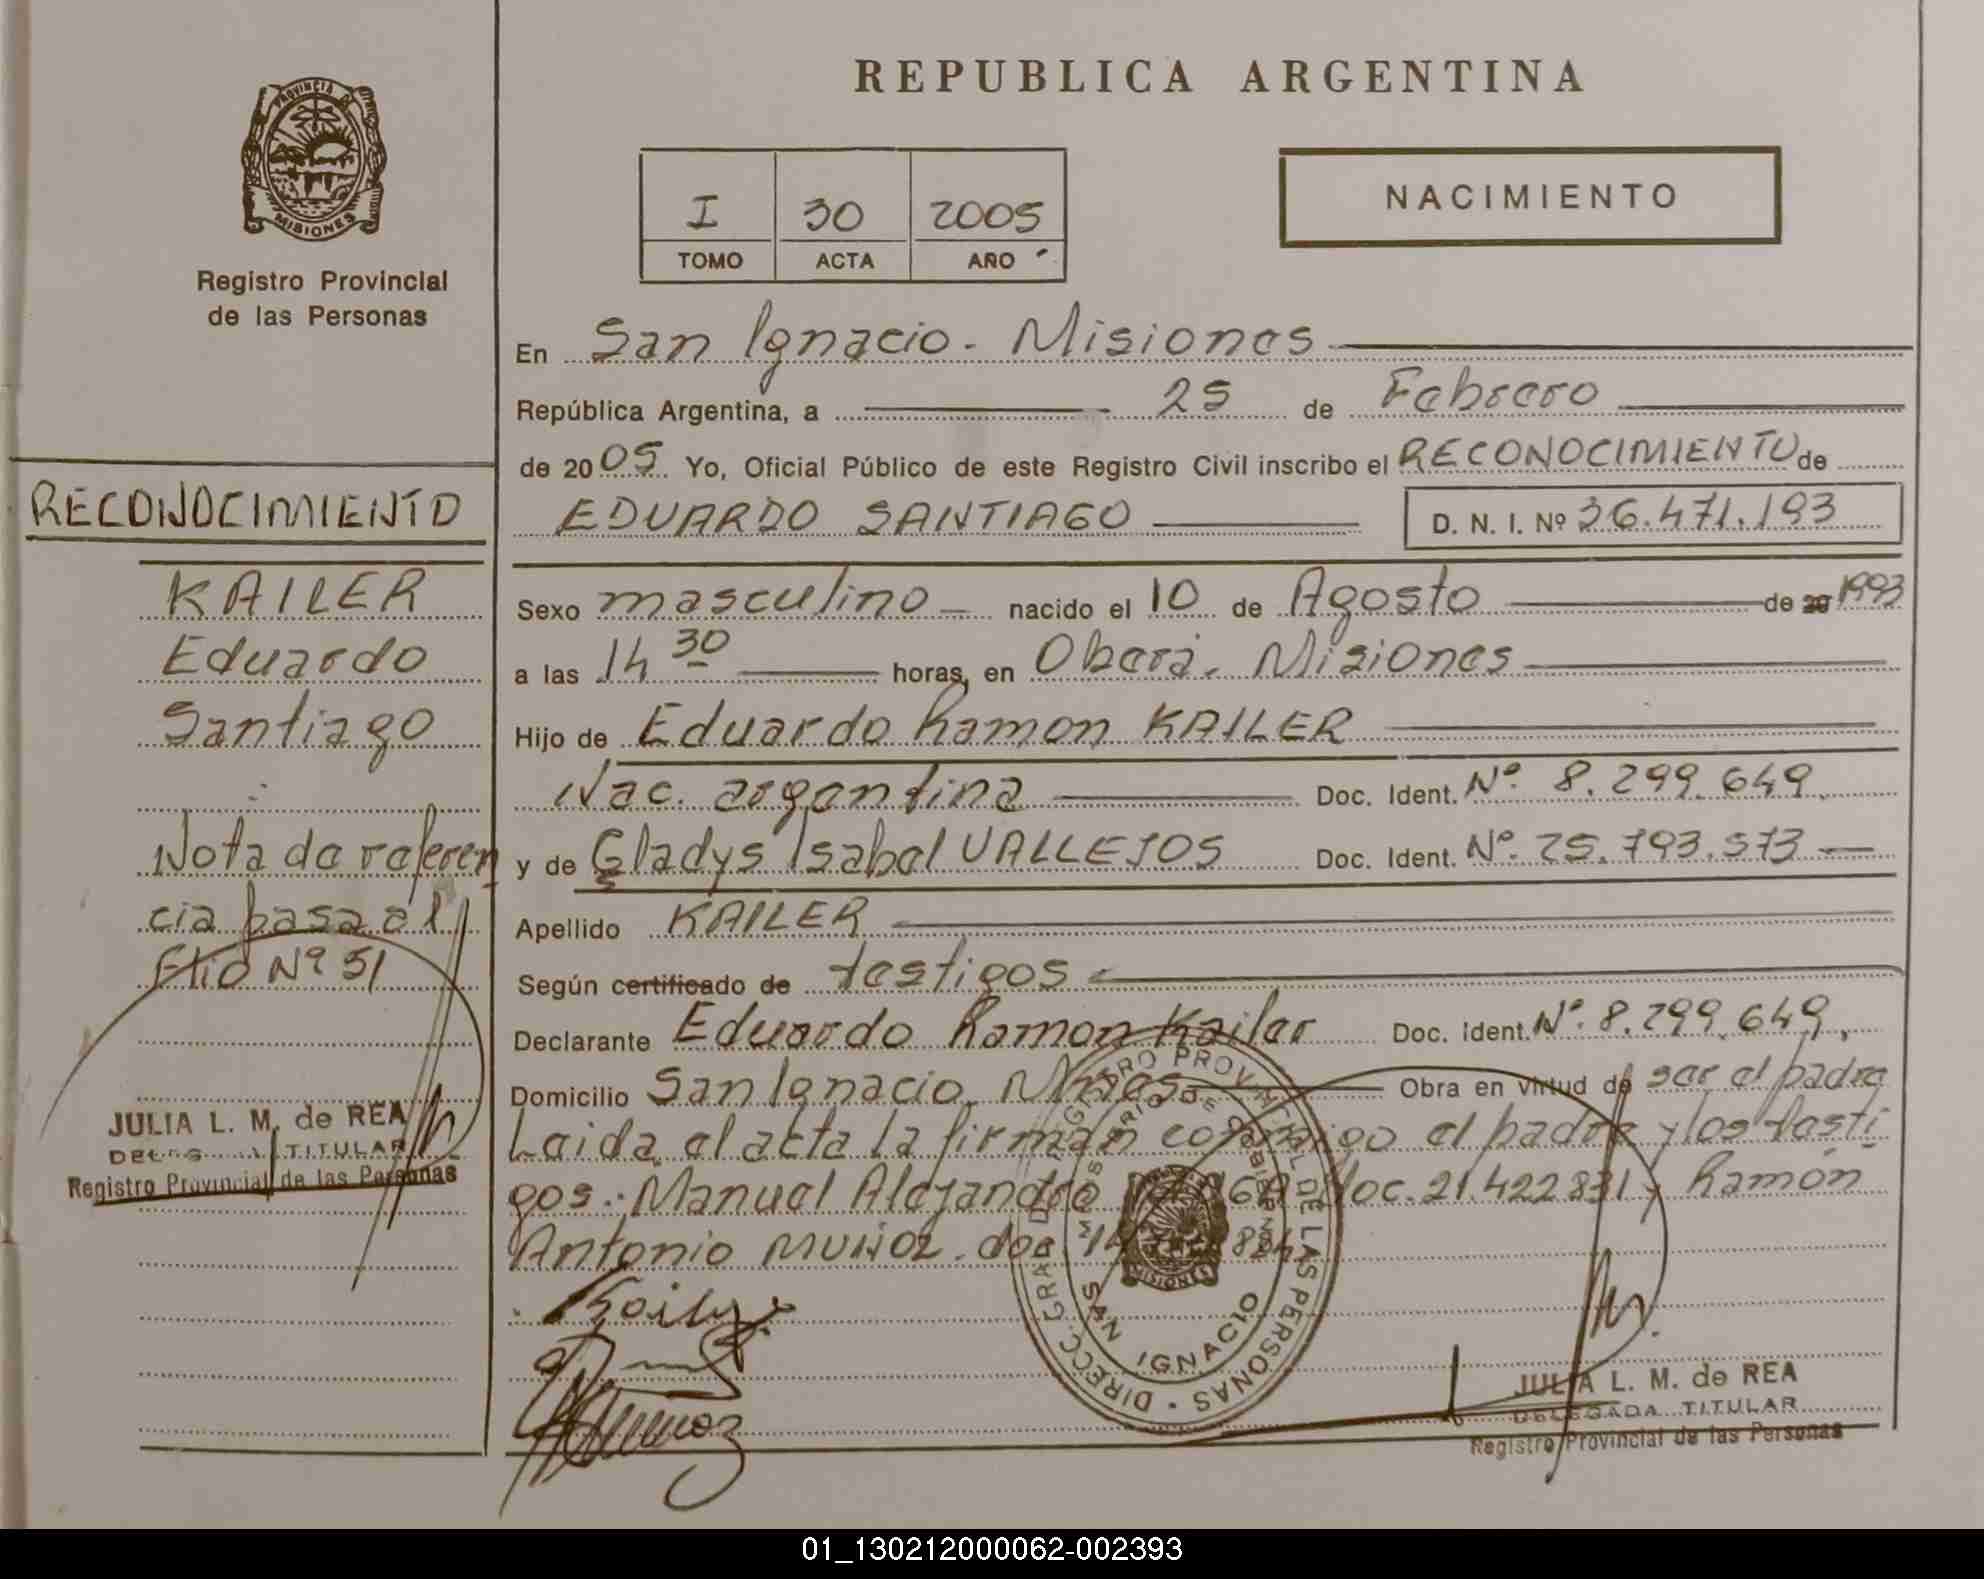 REPUBLICA ARGENTINA
PROVINCIA DE
MISIONES
Registro Provincial
de las Personas
I 30 2005
TOMO ACTA AÑO
NACIMIENTO
En San Ignacio - Misiones
República Argentina, a 25 de Febrero
de 2005 Yo, Oficial Público de este Registro Civil inscribo el RECONOCIMIENTO de
EDUARDO SANTIAGO D. N. I. Nº 36.471.193
Sexo masculino nacido el 10 de Agosto de 20 1993
a las 14 30 horas, en Oberá. Misiones
Hijo de Eduardo Ramon KAILER
Nac. argentina Doc. Ident. Nº 8.299.649.
y de Gladys Isabel VALLEJOS Doc. Ident. Nº 25.793.573
Apellido KAILER
Según certificado de testigos
Declarante Eduardo Ramon Kailer Doc. Ident. Nº 8.299.649.
Domicilio San Ignacio Mnes Obra en virtud de ser el padre
Leida el acta la firman conmigo el padre y los testi
gos: Manuel Alejandro doc. 21.422831 y Ramón
Antonio MUÑOZ doc
RECONOCIMIENTO
KAILER
Eduardo
Santiago
Nota de referen
cia pasa al
Flio Nº 51
JULIA L. M. de REA
TITULAR
Registro Provincial de las Personas
DIRECC. GRAL. DEL REGISTRO PROVINCIAL DE LAS PERSONAS
MINISTERIO DE GOBIERNO
MISIONES
SAN IGNACIO
JULIA L. M. de REA
DELEGADA TITULAR
Registro Provincial de las Personas
01_130212000062-002393